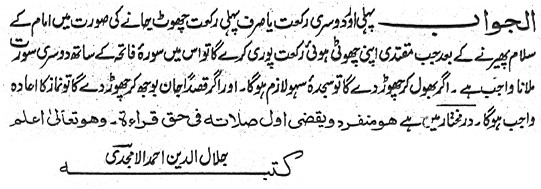 الجواب ــــ پہلی اور دوسری رکعت یا صرف پہلی رکعت چھوٹ جانے کی صورت میں امام کے
سلام پھیرنے کے بعد جب مقتدی اپنی چھوٹی ہوئی رکعت پوری کرے گا تو اس میں سورۂ فاتحہ کے ساتھ دوسری سورت
ملانا واجب ہے۔ اگر بھول کر چھوڑ دے گا تو سجدۂ سہو لازم ہوگا۔ اور اگر قصداً جان بوجھ کر چھوڑ دے گا تو نماز کا اعادہ
واجب ہوگا۔ درمختار میں ہے ھو منفرد ویقضی اول صلاتہ فی حق قراءۃ۔ وھو تعالیٰ اعلم
جلال الدین احمد الامجدی
کتبہ